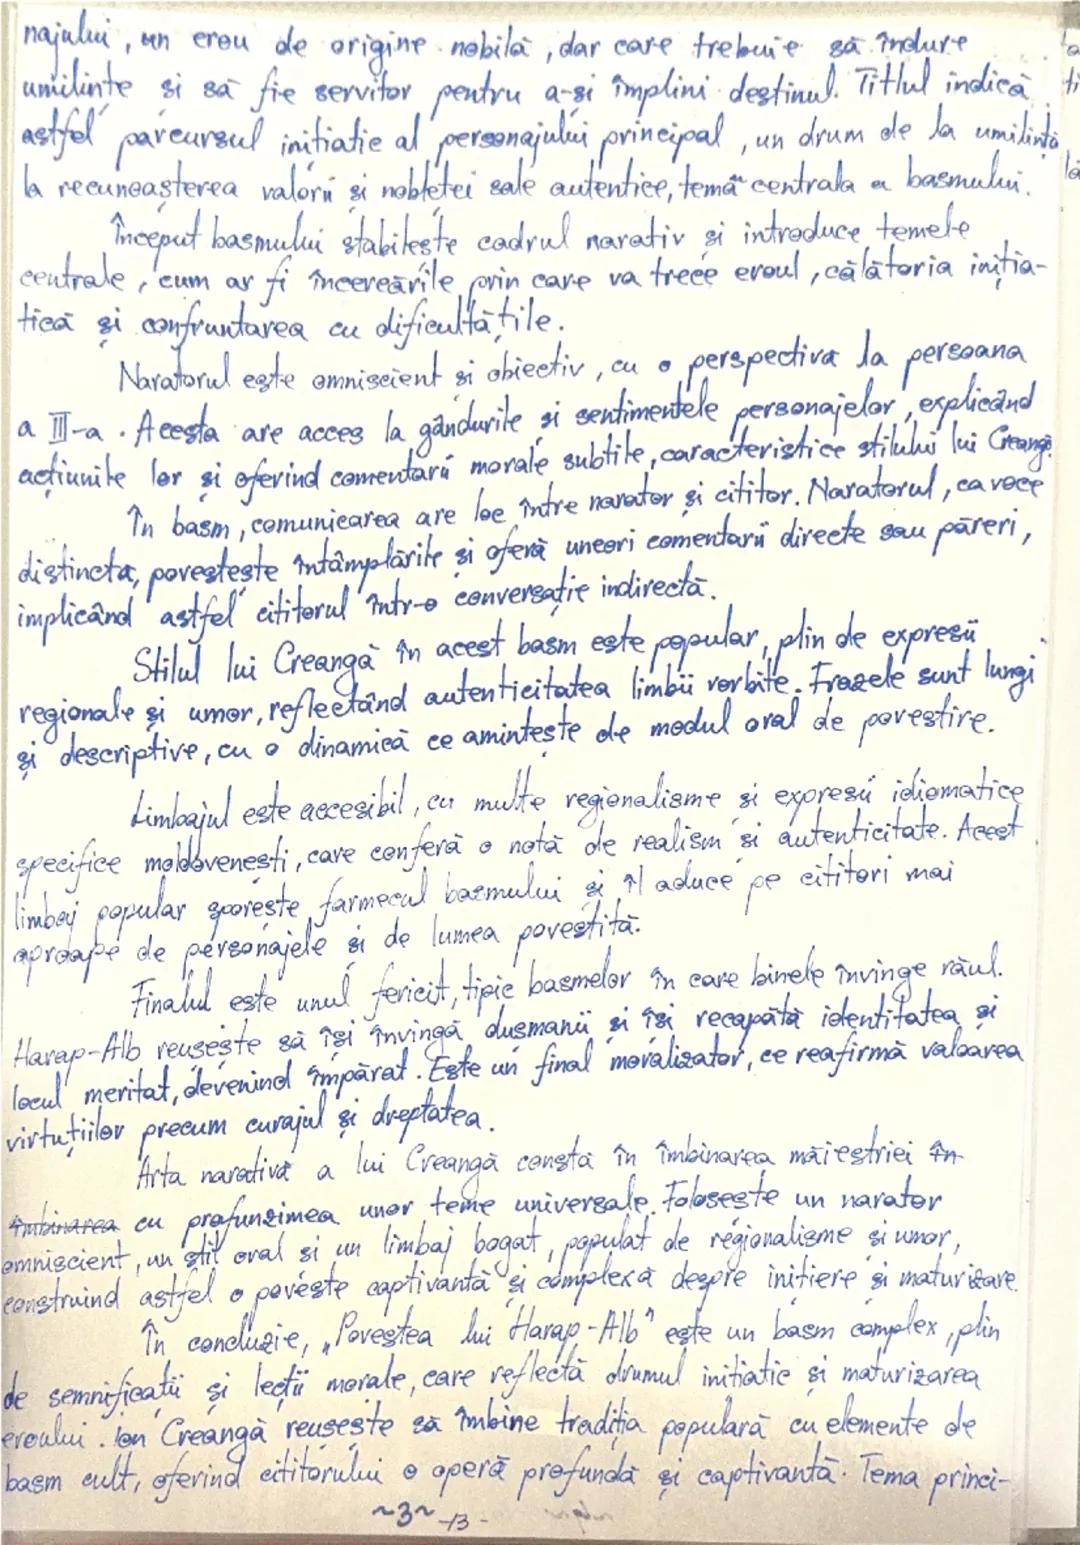 najului, un erou de origine nobilă, dar care trebuie să îndure
umilințe și să fie servitor pentru a-și împlini destinul. Titlul indică
astfel parcursul inițiatic al personajului principal, un drum de la umilință
la recunoașterea valorii și nobleței sale autentice, temă centrala a basmului.
Început basmului stabilește cadrul narativ și introduce temele
centrale, cum ar fi încercările prin care va trece eroul, călătoria iniția-
tică și confruntarea cu dificultățile.
Naratorul este omniscient și obiectiv, cu o perspectiva la persoana
a III-a. Acesta are acces la gândurile și sentimentele personajelor, explicând
acțiunile lor și oferind comentarii morale subtile, caracteristice stilului lui Creangă.
În basm, comunicarea are loc între narator și cititor. Naratorul, ca voce
distincta, povestește întâmplările și oferă uneori comentarii directe sau păreri,
implicând astfel cititorul într-o conversație indirectă.
Stilul lui Creangă în acest basm este popular, plin de expresii
regionale și umor, reflectând autenticitatea limbii vorbite. Frazele sunt lungi
și descriptive, cu o dinamică ce amintește de modul oral de povestire.
Limbajul este accesibil, cu multe regionalisme și expresii idiomatice
specifice moldovenești, care conferă o notă de realism și autenticitate. Acest
limbaj popular sporește farmecul basmului și îl aduce pe cititori mai
aproape de personajele și de lumea povestită.
Finalul este unul fericit, tipic basmelor în care binele învinge răul.
Harap-Alb reușește să își învingă dușmanii și își recapătă identitatea și
locul meritat, devenind împărat. Este un final moralizator, ce reafirmă valoarea
virtuțiilor precum curajul și dreptatea.
Arta narativă a lui Creangă constă în îmbinarea măiestriei în
îmbinarea cu profunzimea unor teme universale. Folosește un narator
omniscient, un stil oral și un limbaj bogat, populat de regionalisme și umor,
construind astfel o poveste captivantă și complexă despre inițiere și maturizare.
În concluzie, „Povestea lui Harap-Alb" este un basm complex, plin
de semnificații și lecții morale, care reflectă drumul inițiatic și maturizarea
eroului. Ion Creangă reușește să îmbine tradiția populară cu elemente de
basm cult, oferind cititorului o operă profundă și captivantă. Tema princi-
~3~ -13-